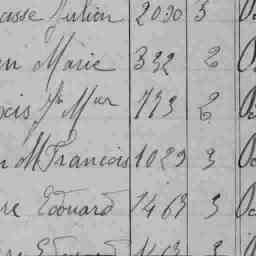 asse Julien 2030 3
n Marie 332 2
xis Jh Mar 773 2
n M François 1029 3
re Edouard 1463 3